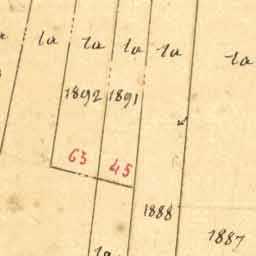 la la la la la
1892 1891
63 45
1888
1887
la